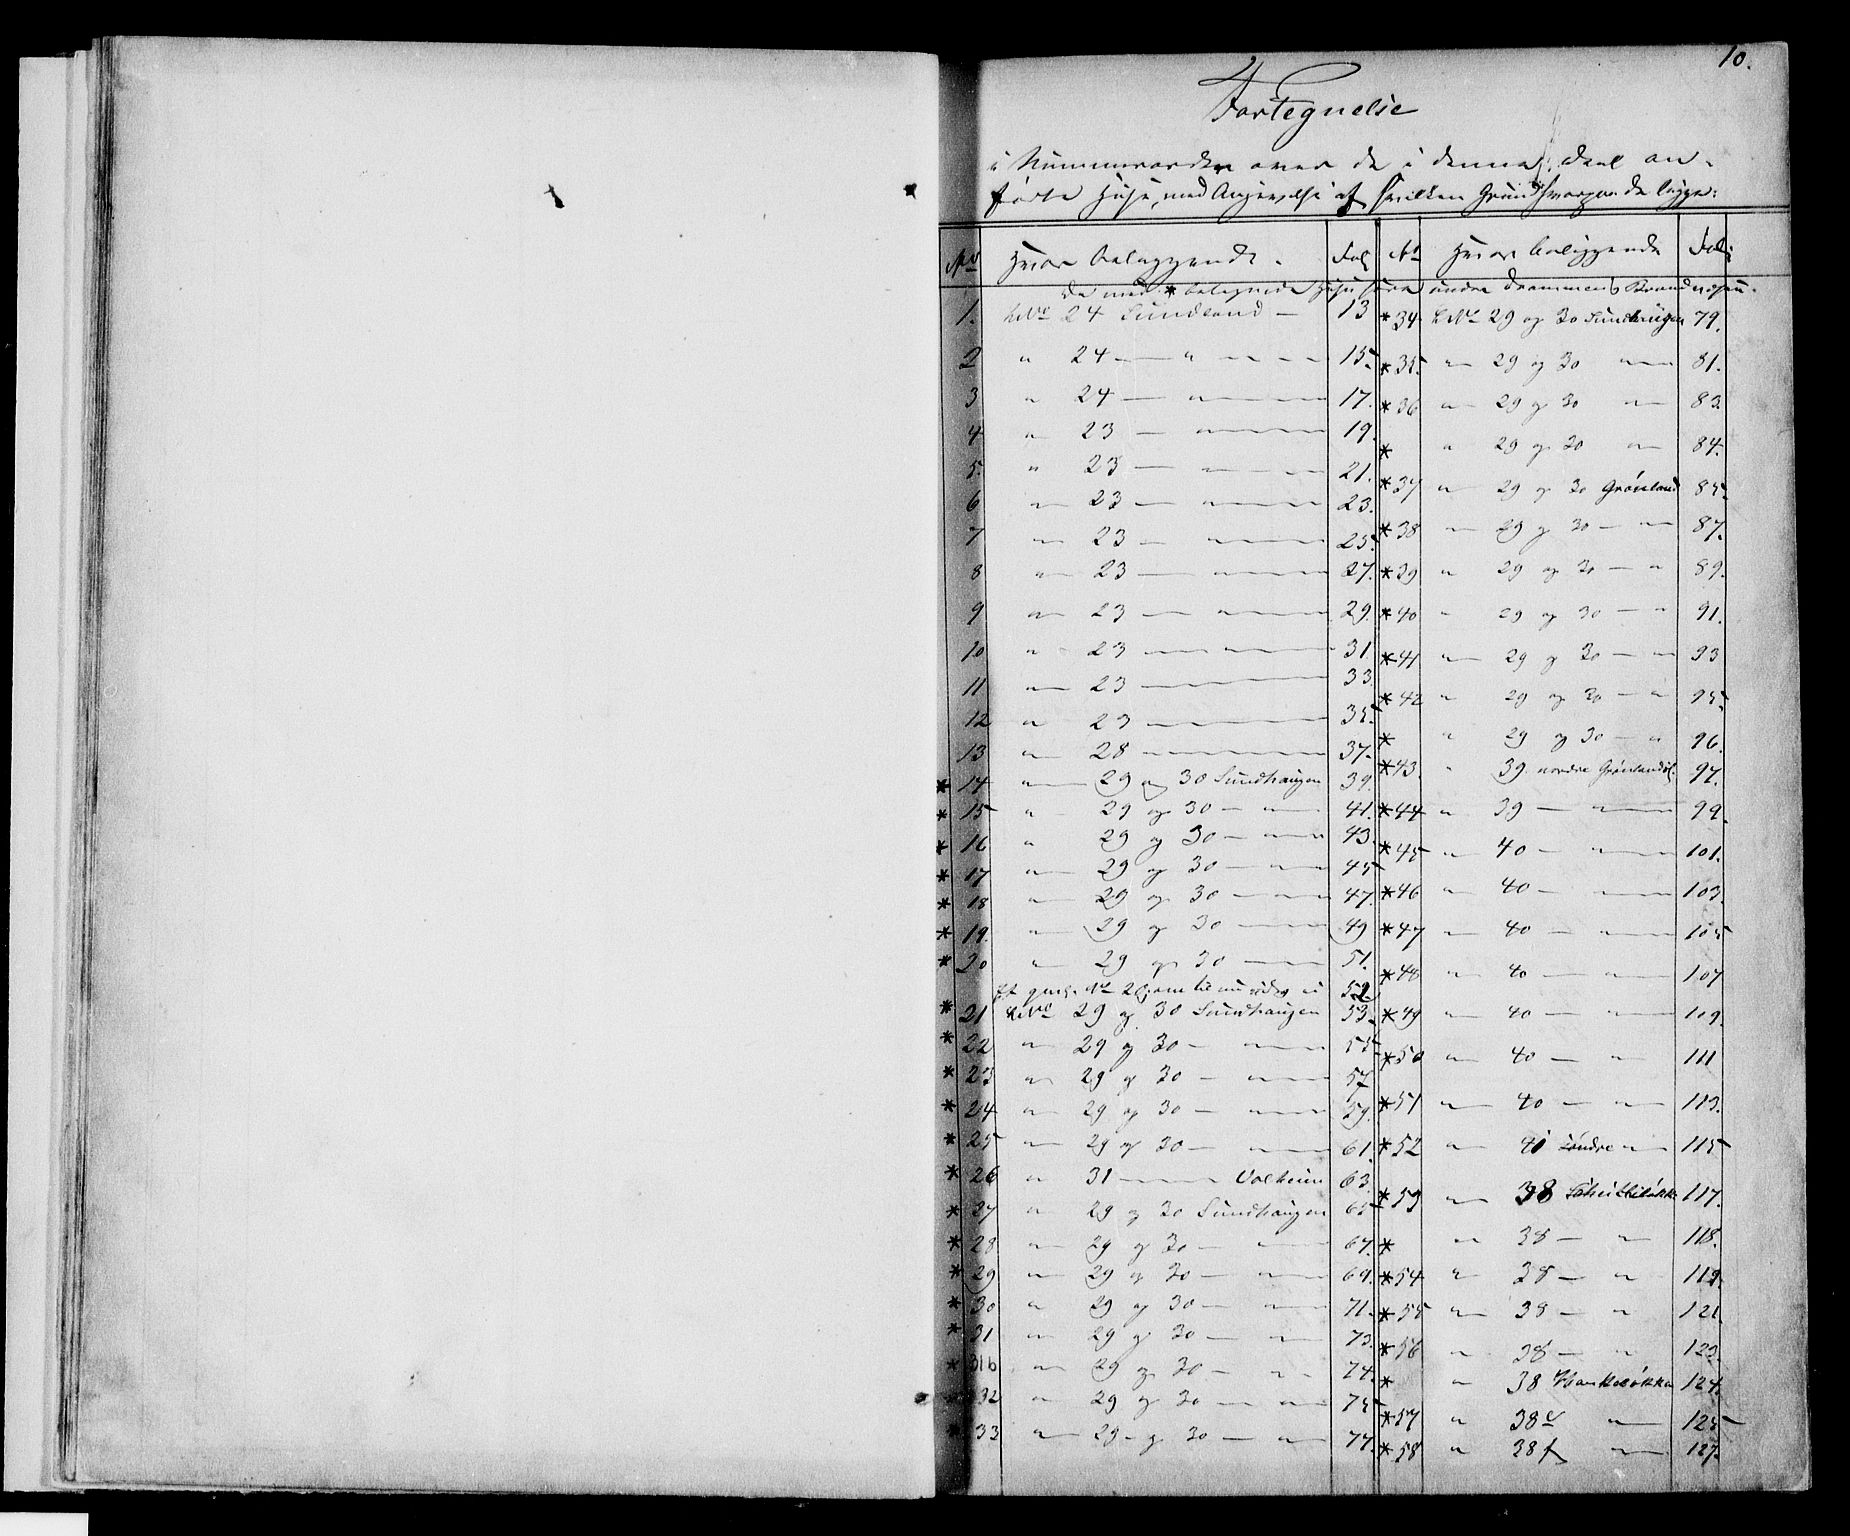 10.
Fortegnelse
i Nummerorden over de i denne Deel an-
førte Huse, med Angivelse af hvilken Grund hvorpaa de ligge:
No Hvor beliggende. Fol
De med * betegnede Huse ere under Drammens Brandvæsen.
1. LNo 24 Sundland — 13
2 " 24 — " — 15.
3 " 24 — " — 17.
4 " 23 — " — 19.
5. " 23 — " — 21.
6 " 23 — " — 23.
7 " 23 — " — 25.
8 " 23 — " — 27.
9 " 23 — " — 29.
10 " 23 — " — 31.
11 " 23 — " — 33.
12 " 23 — " — 35.
13 " 28 — " — 37.
* 14 " 29 og 30 Sundhaugen 39.
* 15 " 29 og 30 — " — 41.
* 16 " 29 og 30 — " — 43.
* 17 " 29 og 30 — " — 45
* 18 " 29 og 30 — " — 47.
* 19. " 29 og 30 — " — 49
* 20 " 29 og 30 — " — 51.
No 20 52.
* 21 LNo 29 og 30 Sundhaugen 53.
* 22 " 29 og 30 — " — 55
* 23 " 29 og 30 — " — 57
* 24 " 29 og 30 — " — 59.
* 25 " 29 og 30 — " — 61.
* 26 " 31 — " — 63.
* 27 " 29 og 30 Sundhaugen 65
* 28 " 29 og 30 — " — 67.
* 29 " 29 og 30 — " — 69.
* 30 " 29 og 30 — " — 71.
* 31 " 29 og 30 — " — 73.
* 31b " 29 og 30 — " — 74.
* 32 " 29 og 30 — " — 75
* 33 " 29 og 30 — " — 77.
No Hvor beliggende Fol:
*34 LNo 29 og 30 Sundhaugen 79.
*35. " 29 og 30 " 81.
*36 " 29 og 30 " 83.
* " 29 og 30 " 84.
*37 " 29 og 30 Grønland 85.
*38 " 29 og 30 — " 87.
*39 " 29 og 30 — " 89.
*40 " 29 og 30 — " 91.
*41 " 29 og 30 — " 93
*42 " 29 og 30 — " 95.
* " 29 og 30 — " 96.
*43. " 39 nordre Grønland 97.
*44 " 39 — " 99.
*45 " 40 — " 101.
*46 " 40 — " 103.
*47 " 40 — " 105
*48 " 40 — " 107
*49 " 40 — " 109.
*50 " 40 — " 111
*51 " 40 — " 113.
*52 " 40 søndre " 115
*53 " 38 117.
* " 38 — " 118.
*54 " 38 — " 119.
*55 " 38 — " 121
*56 " 38 — " 123.
* " 38 124.
*57 " 38 " 125
*58 " 38f " 127.